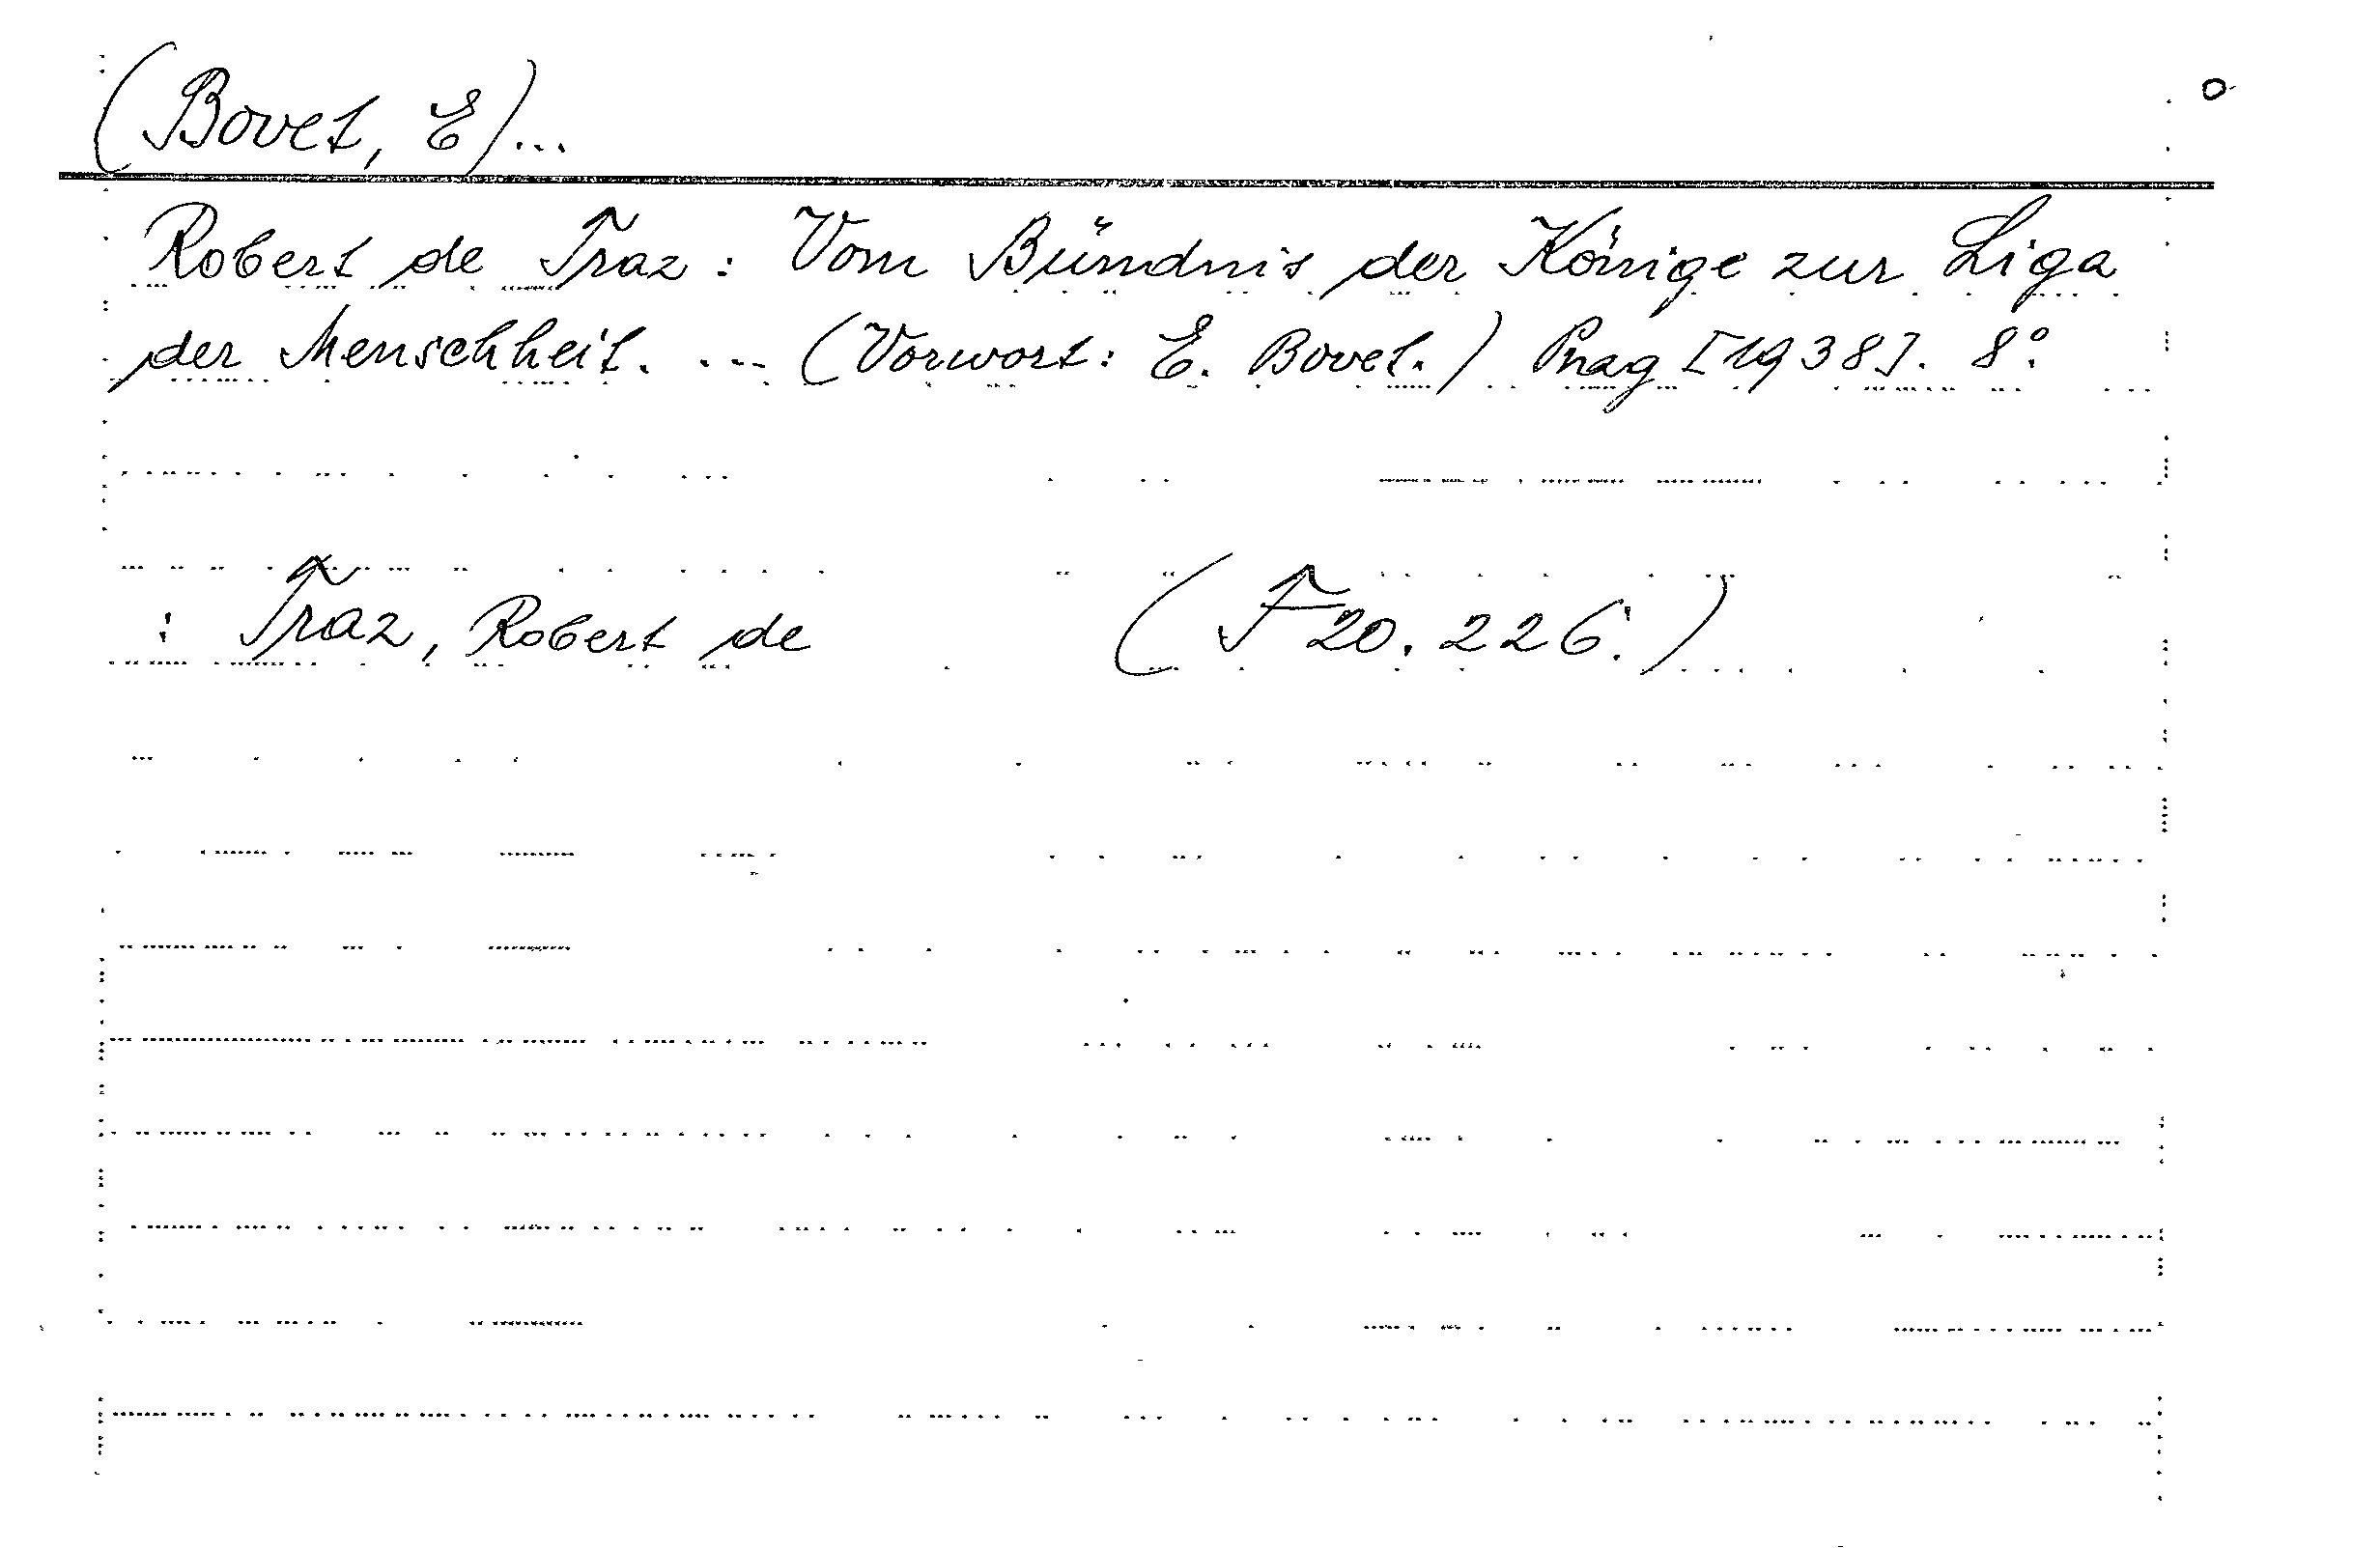 (Bovet, E)...
Robert de Traz: Vom Bündnis der Könige zur Liga
der Menschheit. ... (Vorwort: E. Bovet.) Prag [1938]. 8°.
: Traz, Robert de (F 20.226.)